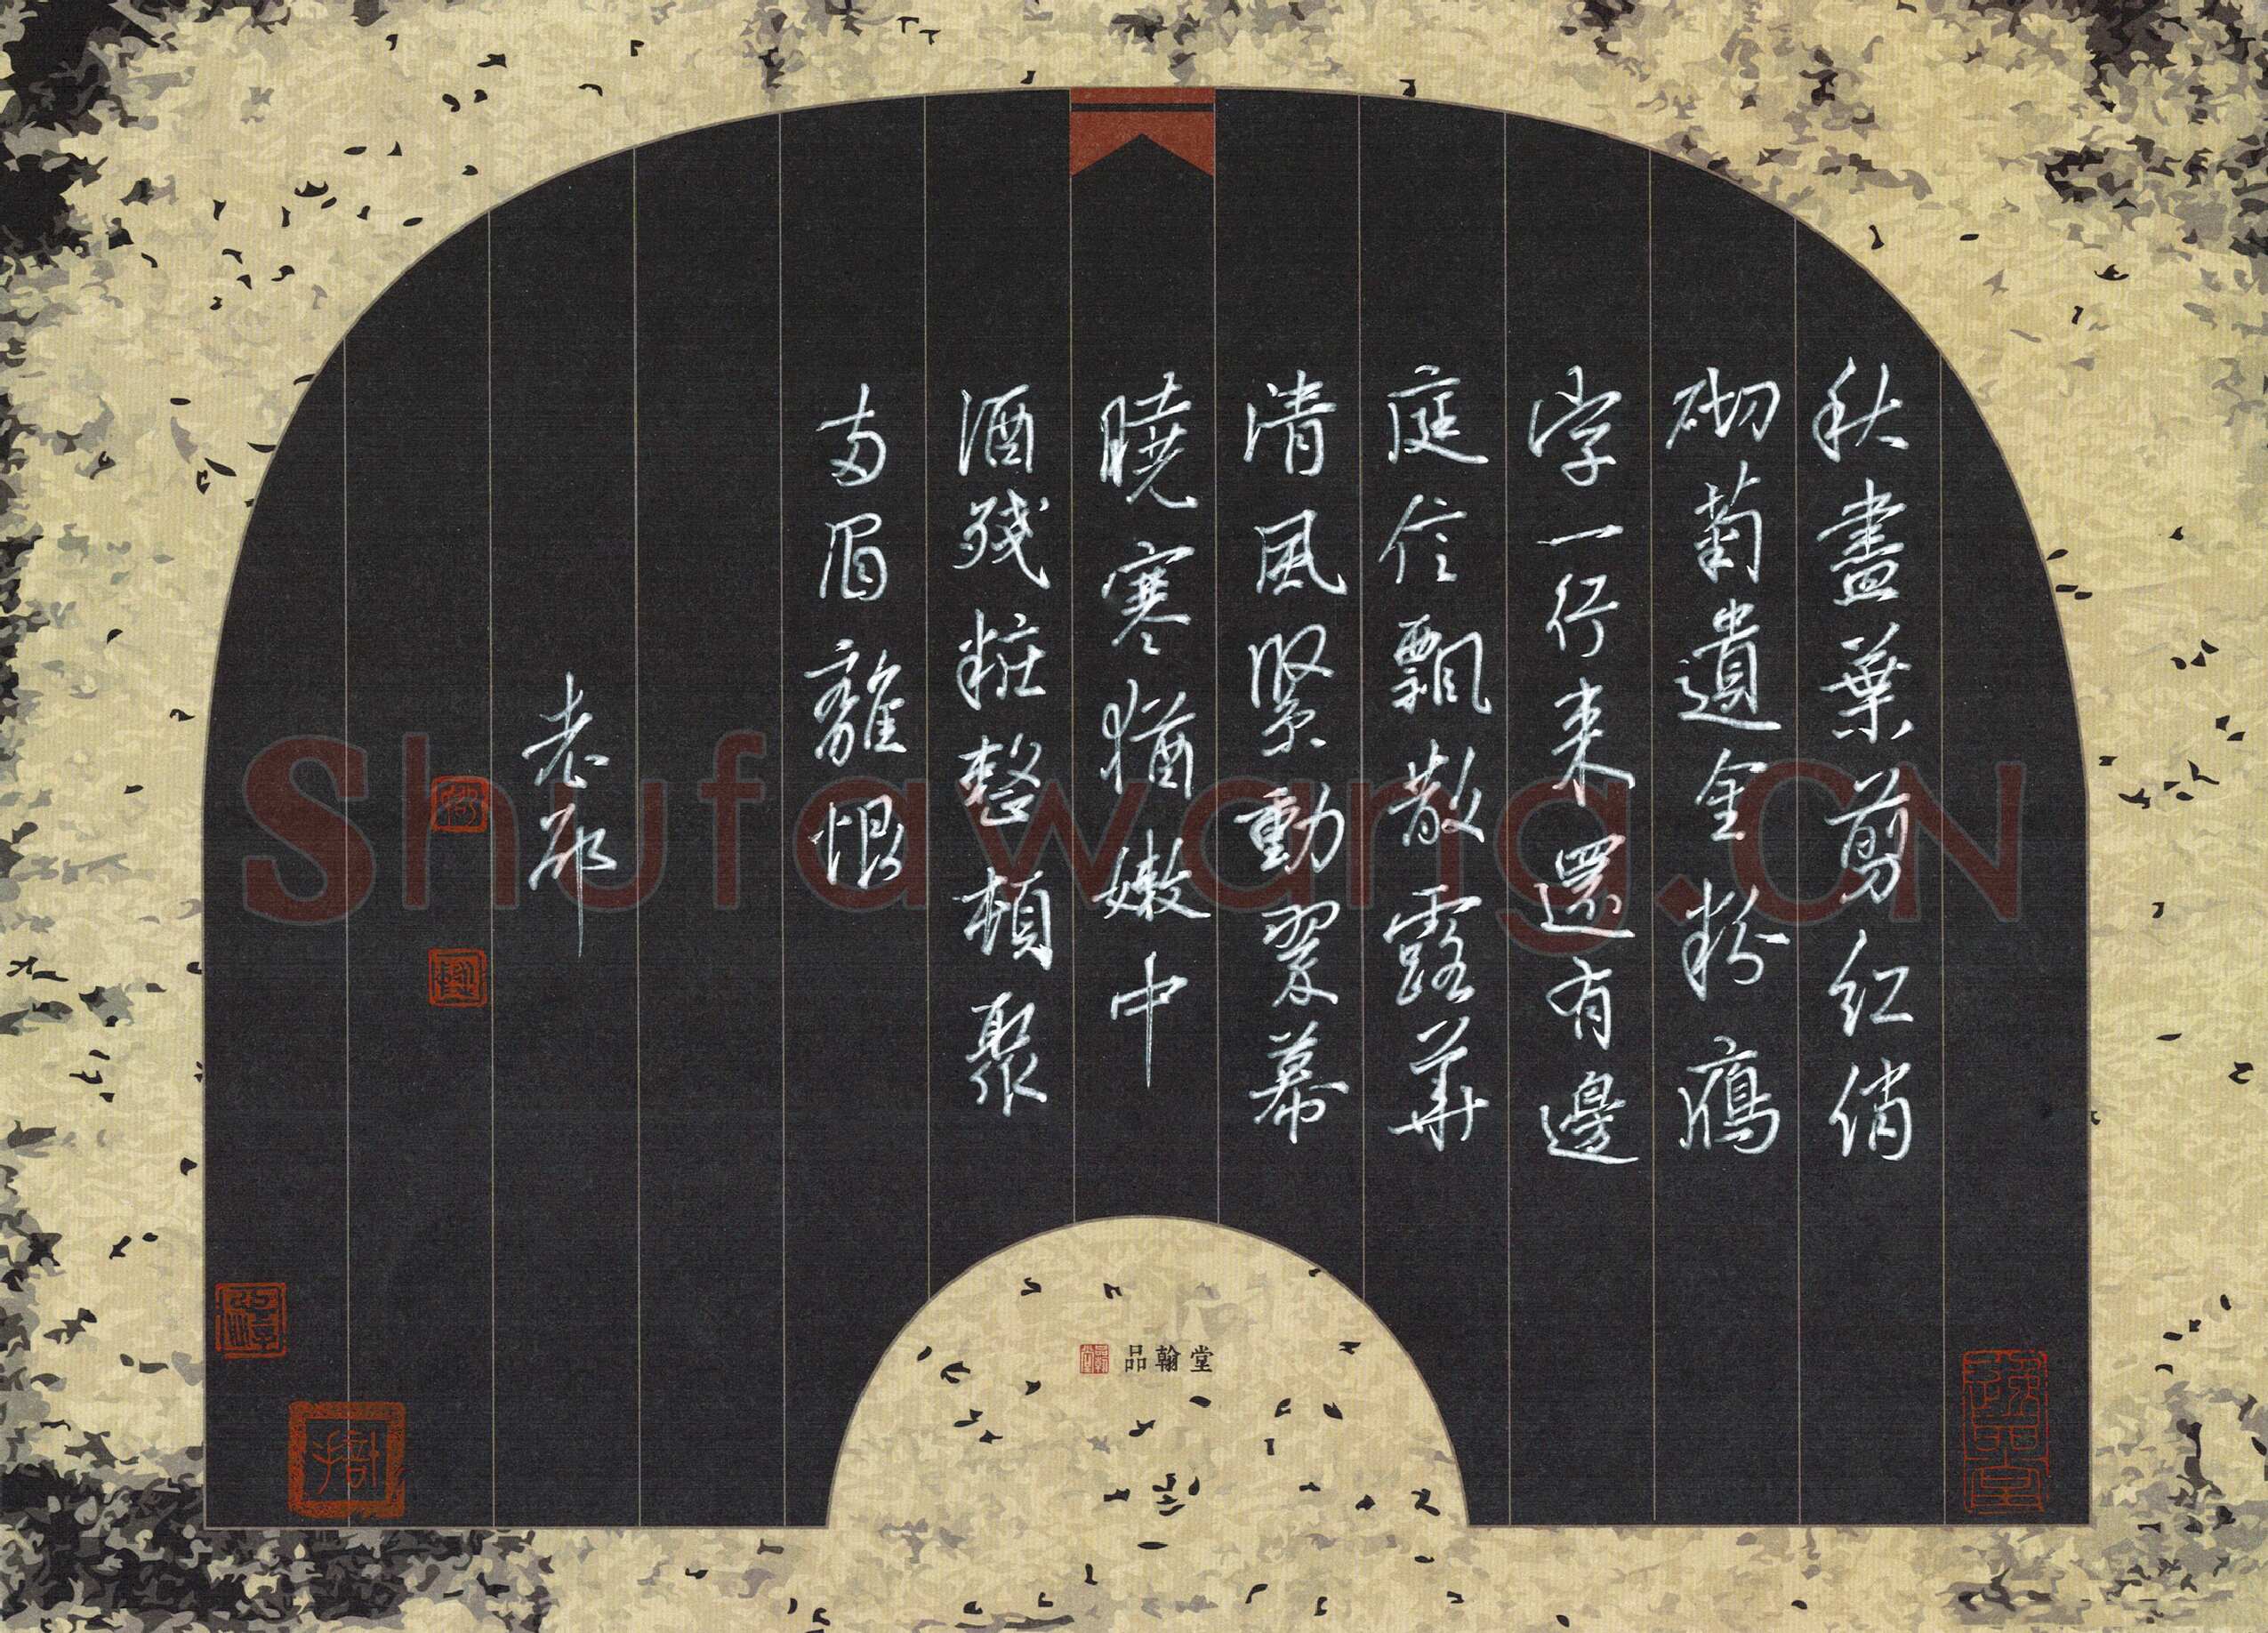 秋盡葉翦紅俏
砌菊遺金粉鴈
字一行来還有邊
庭信飄散露華
清風緊動翠幕
曉寒猶嫩中
酒殘粧整頓聚
兩眉離恨
老邪
品翰堂
Shufawang.CN